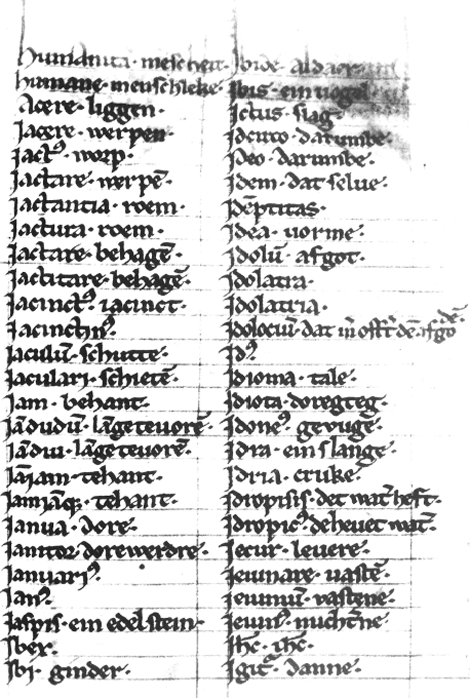 humanita· mescheit·
humane· menschleke·
Acere· liggen·
Jacere· werpen·
Jactꝰ· worp·
Jactare· werpē·
Jactantia· roem·
Jactura· roem·
Jactare· behagē·
Jactitare· behagē·
Jacinctꝰ· iacinct·
Jacinctinꝰ·
Jaculū· schutte·
Jaculari· schietē·
Jam· behant·
Jādudū· lāgetevorē·
Jādiu· lāgetevorē·
Jāiam· tehant·
Jamiāqꝫ· tehant·
Janua· dore·
Janitor· dorewerdre·
Januariꝰ·
Janꝰ·
Jaspis· ein edelstein·
Jber·
Jbi· ginder·
Jbide· aldaer
Jbis· ein uogel
Jctus· slag·
Jdcirco· darumbe·
Jdeo· darumbe·
Jdem· dat selue·
Jdēptitas·
Jdea· uorme·
Jdolū· afgot·
Jdolatra·
Jdolatria·
Jdolociū· dat
Jdꝰ·
Jdioma· tale·
Jdiota· doregteg·
Jdoneꝰ· gevuge·
Jdra· ein slange·
Jdria· cruke·
Jdropisis· det wat̄heft·
Jdropicꝰ· deheuet wat̄·
Jecur· leuere·
Jeiunare· uastē·
Jeiuniū· vastene·
Jeiunꝰ· nucht̄ne·
Jħc· iħc·
Jgit̄· danne·